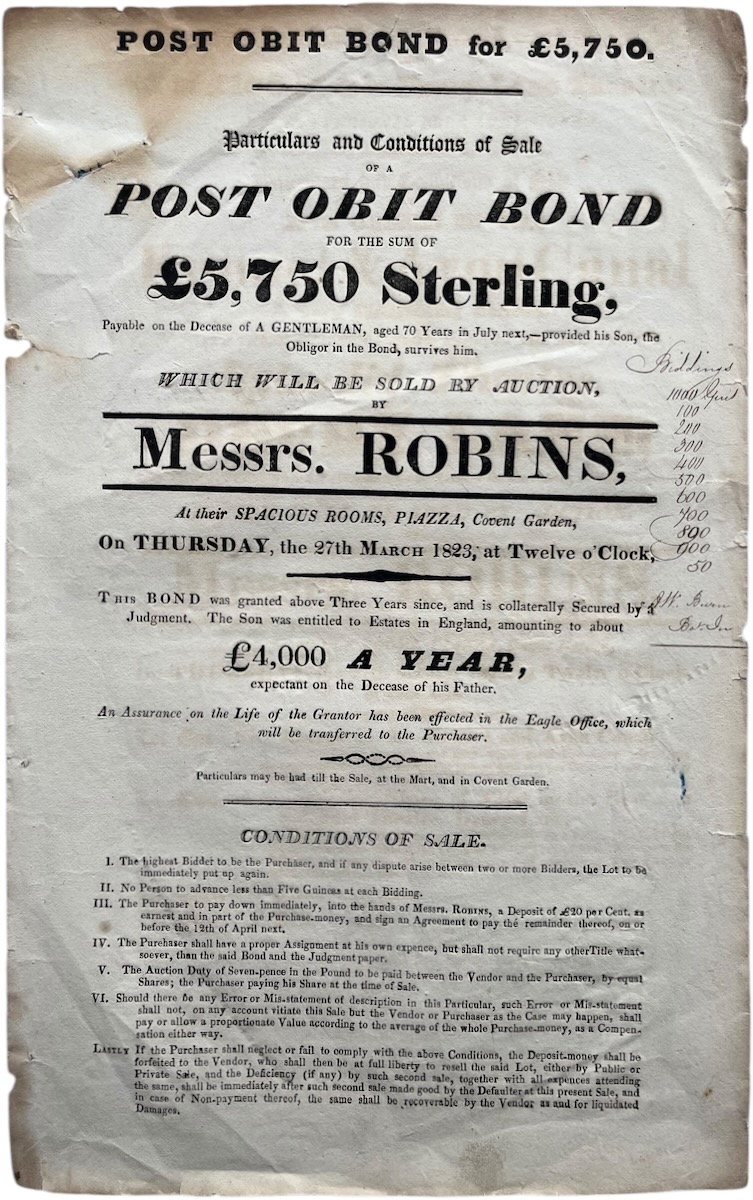 POST OBIT BOND for £5,750.
Particulars and Conditions of Sale
OF A
POST OBIT BOND
FOR THE SUM OF
£5,750 Sterling,
Payable on the Decease of A GENTLEMAN, aged 70 Years in July next,—provided his Son, the
Obligor in the Bond, survives him.
WHICH WILL BE SOLD BY AUCTION,
BY
Messrs. ROBINS,
At their SPACIOUS ROOMS, PIAZZA, Covent Garden,
On THURSDAY, the 27th MARCH 1823, at Twelve o'Clock,
Biddings
1000
100
200
300
400
500
600
700
800
900
50
THIS BOND was granted above Three Years since, and is collaterally Secured by a
Judgment. The Son was entitled to Estates in England, amounting to about
£4,000 A YEAR,
expectant on the Decease of his Father.
An Assurance on the Life of the Grantor has been effected in the Eagle Office, which
will be tranferred to the Purchaser.
Particulars may be had till the Sale, at the Mart, and in Covent Garden.
CONDITIONS OF SALE.
I. The highest Bidder to be the Purchaser, and if any dispute arise between two or more Bidders, the Lot to be
immediately put up again.
II. No Person to advance less than Five Guineas at each Bidding.
III. The Purchaser to pay down immediately, into the hands of Messrs. ROBINS, a Deposit of £20 per Cent. as
earnest and in part of the Purchase-money, and sign an Agreement to pay the remainder thereof, on or
before the 12th of April next.
IV. The Purchaser shall have a proper Assignment at his own expence, but shall not require any other Title what-
soever, than the said Bond and the Judgment paper.
V. The Auction Duty of Seven-pence in the Pound to be paid between the Vendor and the Purchaser, by equal
Shares; the Purchaser paying his Share at the time of Sale.
VI. Should there be any Error or Mis-statement of description in this Particular, such Error or Mis-statement
shall not, on any account vitiate this Sale but the Vendor or Purchaser as the Case may happen, shall
pay or allow a proportionate Value according to the average of the whole Purchase-money, as a Compen-
sation either way.
LASTLY If the Purchaser shall neglect or fail to comply with the above Conditions, the Deposit-money shall be
forfeited to the Vendor, who shall then be at full liberty to resell the said Lot, either by Public or
Private Sale, and the Deficiency (if any) by such second sale, together with all expences attending
the same, shall be immediately after such second sale made good by the Defaulter at this present Sale, and
in case of Non-payment thereof, the same shall be recoverable by the Vendor as and for liquidated
Damages.